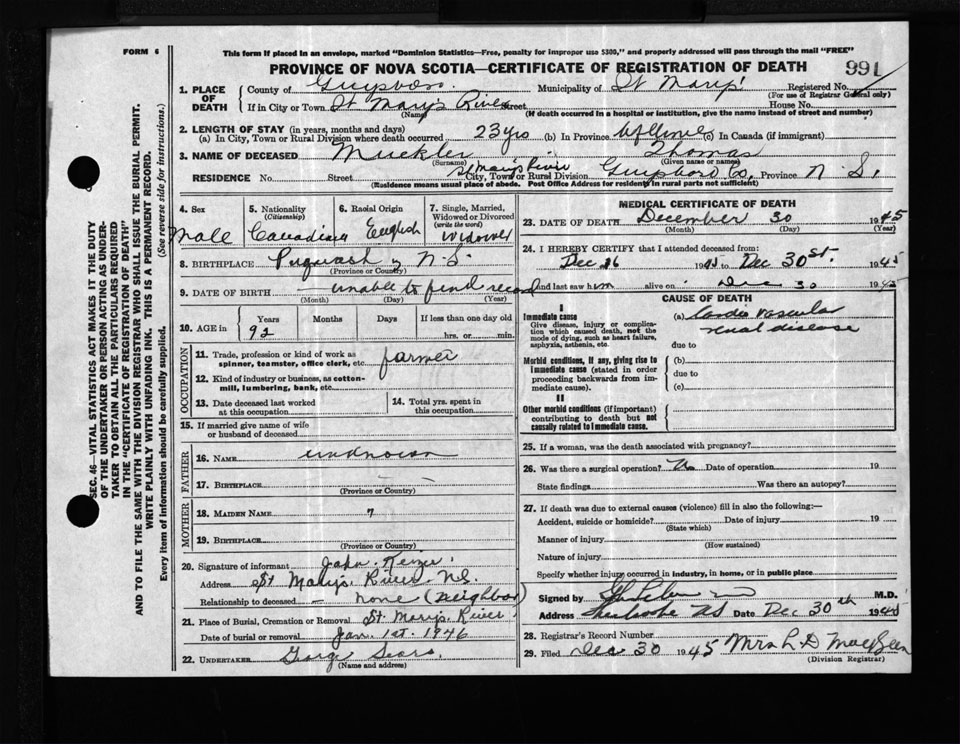 FORM 6
This form if placed in an envelope, marked "Dominion Statistics—Free, penalty for improper use $300," and properly addressed will pass through the mail "FREE"
PROVINCE OF NOVA SCOTIA—CERTIFICATE OF REGISTRATION OF DEATH
991
1. PLACE OF DEATH County of Guysboro. Municipality of St Mary's Registered No.
(For use of Registrar General only)
If in City or Town St Mary's River Street House No.
(Name) (If death occurred in a hospital or institution, give the name instead of street and number)
2. LENGTH OF STAY (in years, months and days)
(a) In City, Town or Rural Division where death occurred 23 yrs (b) In Province lifetime (c) In Canada (if immigrant)
3. NAME OF DECEASED Muckler Thomas
(Surname) (Given name or names)
RESIDENCE No. Street St Mary's River City, Town or Rural Division Guysboro Co. Province N S.
(Residence means usual place of abode. Post Office Address for residents in rural parts not sufficient)
4. Sex 5. Nationality (Citizenship) 6. Racial Origin 7. Single, Married, Widowed or Divorced (write the word)
Male Canadian English Widower
8. BIRTHPLACE Pugwash N.S.
(Province or Country)
9. DATE OF BIRTH unable to find record
(Month) (Day) (Year)
10. AGE in Years Months Days If less than one day old
92 hrs. or min.
OCCUPATION
11. Trade, profession or kind of work as spinner, teamster, office clerk, etc. farmer
12. Kind of industry or business, as cotton-mill, lumbering, bank, etc.
13. Date deceased last worked at this occupation
14. Total yrs. spent in this occupation
15. If married give name of wife or husband of deceased
FATHER
16. NAME unknown
17. BIRTHPLACE
(Province or Country)
MOTHER
18. MAIDEN NAME
19. BIRTHPLACE
(Province or Country)
20. Signature of informant John
Address St Mary's River N.S.
Relationship to deceased none (neighbor)
21. Place of Burial, Cremation or Removal St. Mary's River
Date of burial or removal Jan. 1st. 1946
22. UNDERTAKER George Sears.
(Name and address)
MEDICAL CERTIFICATE OF DEATH
23. DATE OF DEATH December 30 1945
(Month) (Day) (Year)
24. I HEREBY CERTIFY that I attended deceased from:
Dec 26 1945 to Dec 30 St. 1945
and last saw him alive on Dec 30 1945
CAUSE OF DEATH
I
Immediate cause
Give disease, injury or complication which caused death, not the mode of dying, such as heart failure, asphyxia, asthenia, etc.
(a) Cardio vascular
renal disease
due to
Morbid conditions, if any, giving rise to immediate cause (stated in order proceeding backwards from immediate cause).
(b)
due to
(c)
II
Other morbid conditions (if important) contributing to death but not causally related to immediate cause.
25. If a woman, was the death associated with pregnancy?
26. Was there a surgical operation? No Date of operation 19
State findings Was there an autopsy?
27. If death was due to external causes (violence) fill in also the following:—
Accident, suicide or homicide? Date of injury 19
(State which)
Manner of injury
(How sustained)
Nature of injury
Specify whether injury occurred in industry, in home, or in public place
Signed by M.D.
Address Sherbrooke NS Date Dec 30th 1945
28. Registrar's Record Number
29. Filed Dec 30 1945 Mrs L D
(Division Registrar)
SEC. 46—VITAL STATISTICS ACT MAKES IT THE DUTY
OF THE UNDERTAKER OR PERSON ACTING AS UNDER-
TAKER TO OBTAIN ALL THE PARTICULARS REQUIRED
IN THE "CERTIFICATE OF REGISTRATION OF DEATH"
AND TO FILE THE SAME WITH THE DIVISION REGISTRAR WHO SHALL ISSUE THE BURIAL PERMIT.
WRITE PLAINLY WITH UNFADING INK. THIS IS A PERMANENT RECORD.
Every item of information should be carefully supplied. (See reverse side for instructions.)